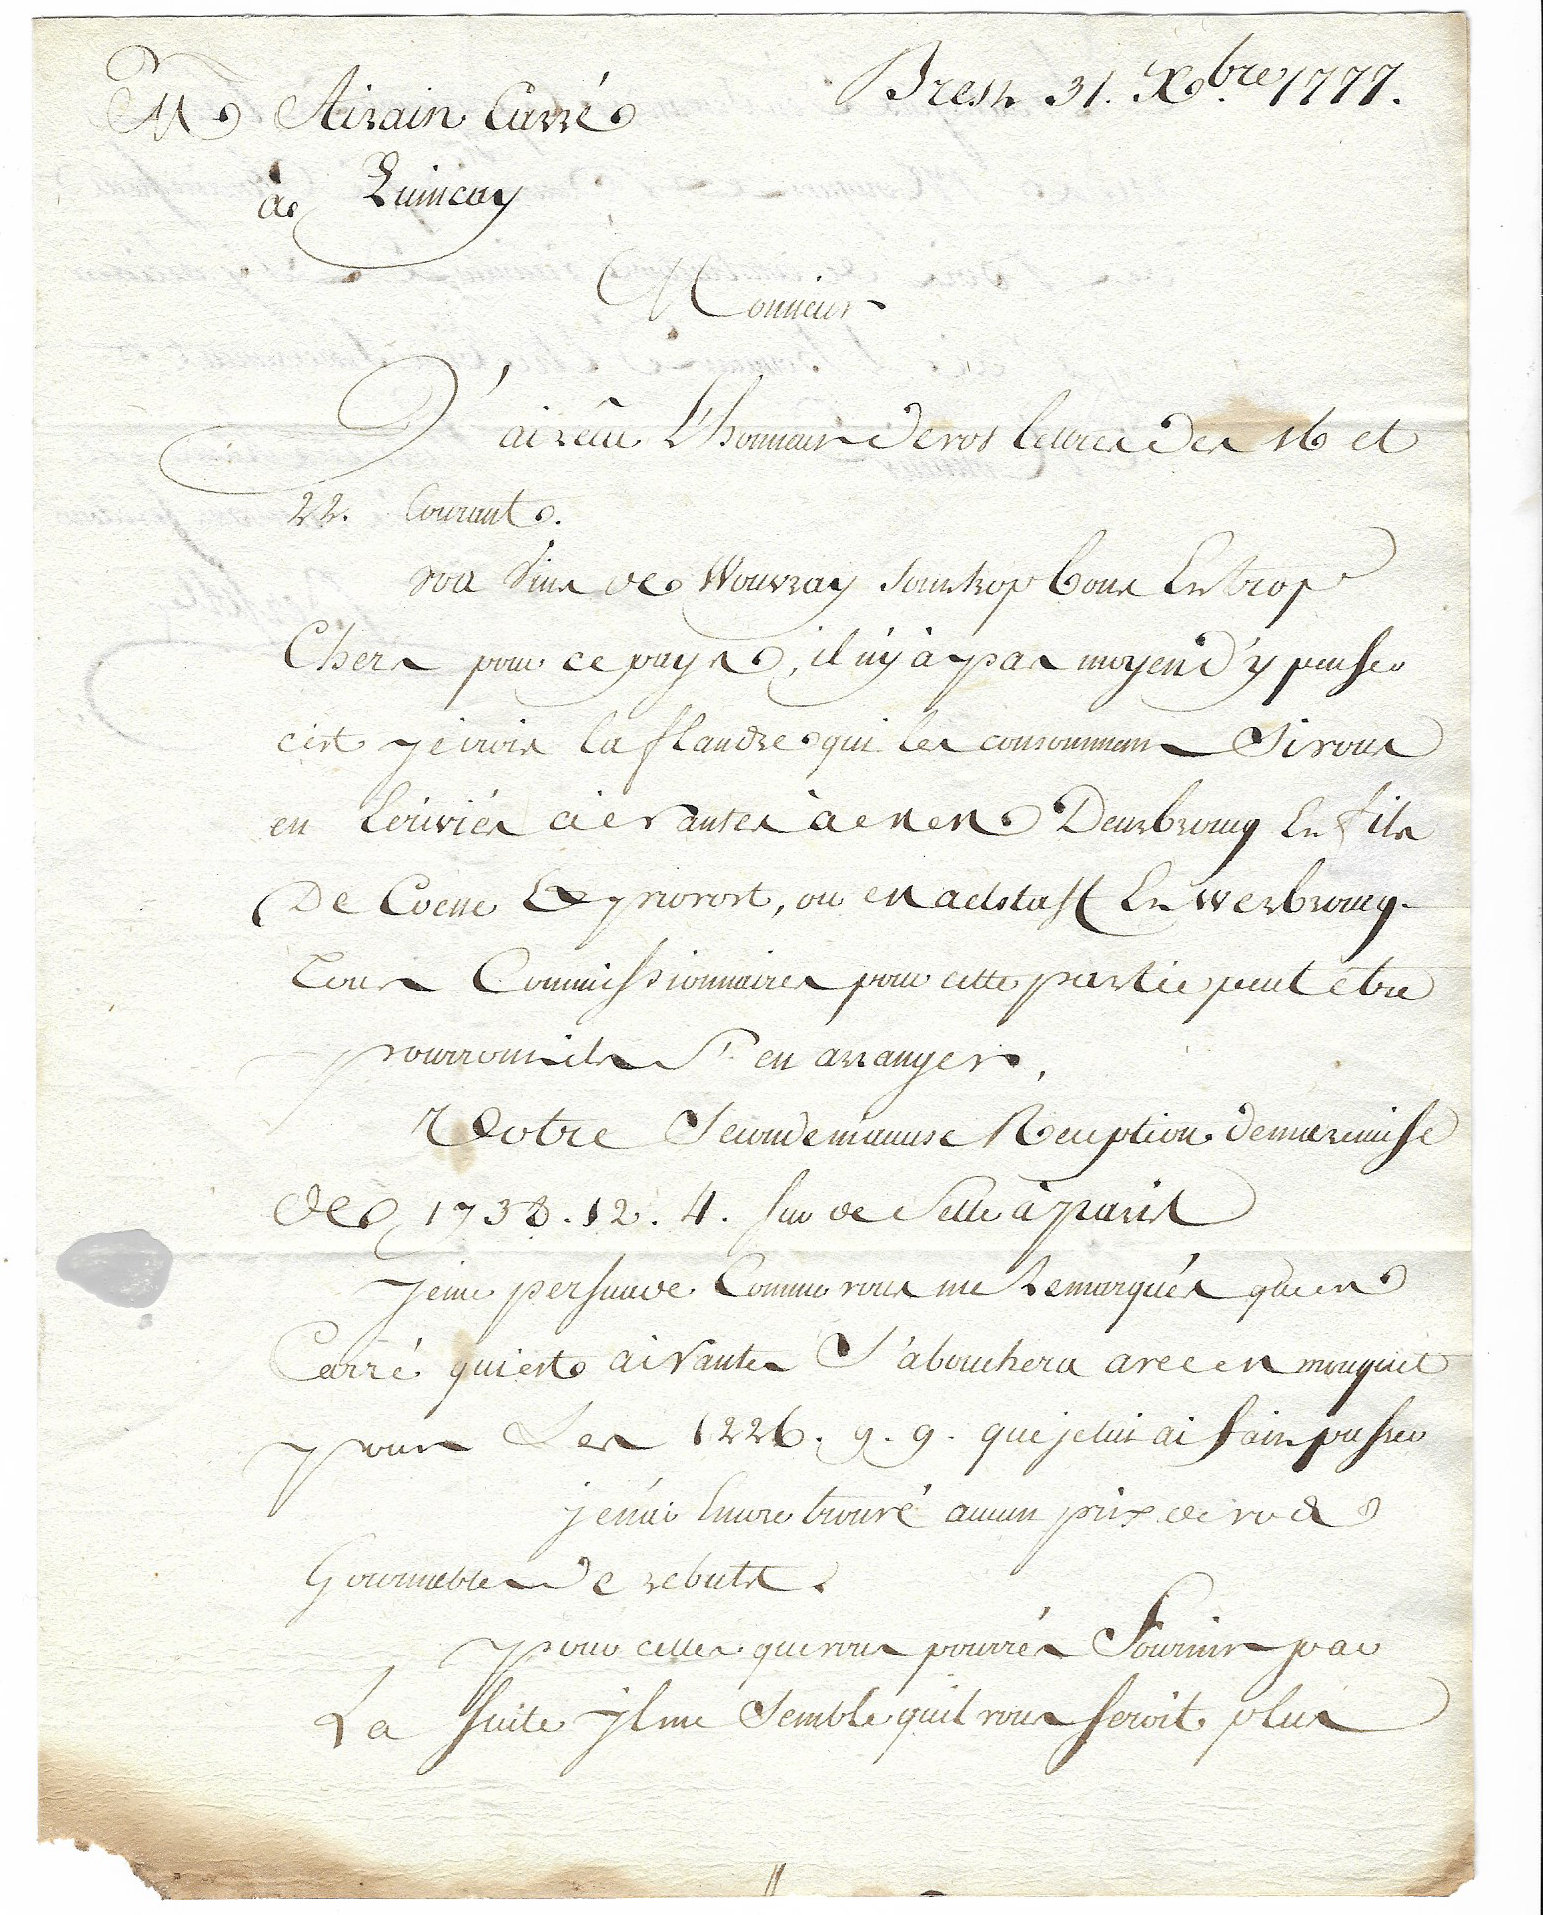 Brest 31. Xbre 1777.
M Airain Carré
à Quincay
Monsieur
J'ai recû L'honneur de vos lettres des 16 et
22. Courant.
vos Vins de Wouvray sont trop bons Et trop
Chers pour ce pays, il n'y à pas moyen d'y penser
c'est je crois la flandre qui les consomment Si vous
en Ecriviés à Nantes à mrs Deurbroucq Et fils
De Coene Et , ou mrs Et Werbroucq
tous Commissionnaires pour cette partie peut etre
pourront ils S'en arranger.
Votre Seconde mannse Reception de ma remise
de 1738.12.4. sur de Selle à Paris
je me persuade Comme vous me Remarqués que mr
Carré qui est à Nantes S'abouchera avec mr mouquet
pour Les 1226.9.9. que je lui ai fait passer
je n'ai Encore trouvé aucun prix de vos
Gournables De rebuts.
pour celles que vous pourrés Fournir par
La suite il me Semble qu'il vous seroit plus